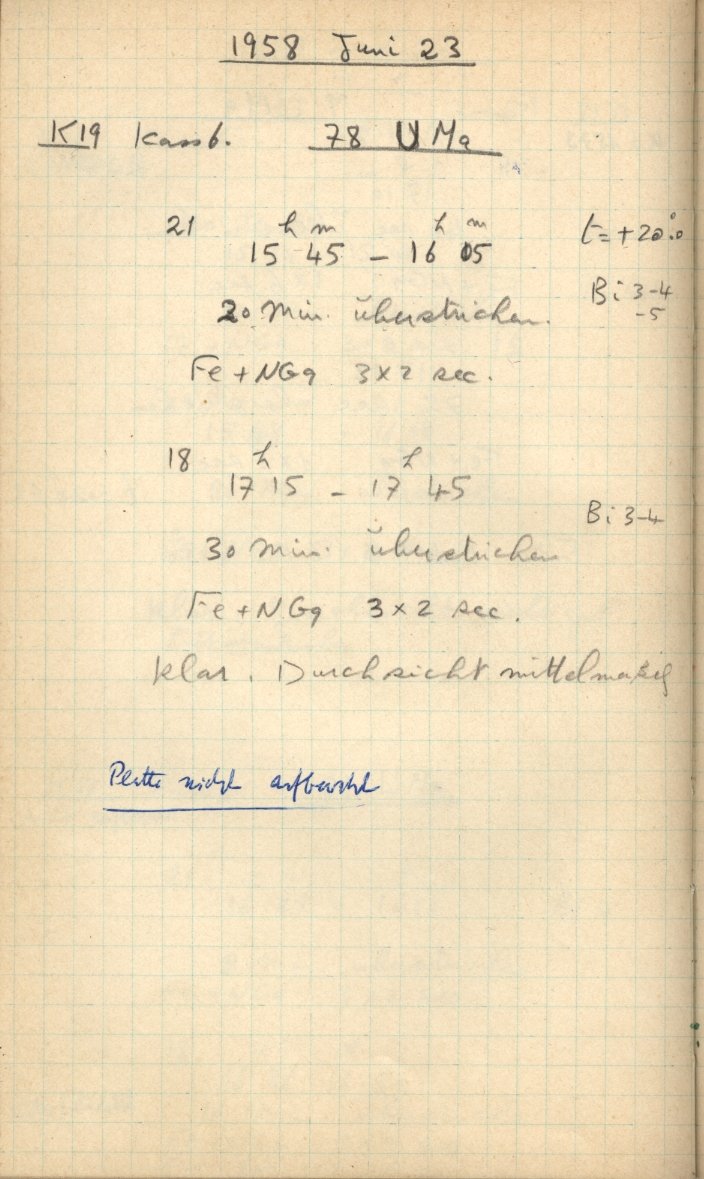 1958 Juni 23
K19 Kass 6. 78 UMa
21 15h 45m – 16h 05m t = +20°.0
Bi 3-4
-5
20 Min. überstrichen.
Fe + NGg 3 x 2 sec.
18 17h 15 – 17h 45
Bi 3-4
30 Min. überstrichen
Fe + NGg 3 x 2 sec.
klar. Durchsicht mittelmäßig
Platte nicht aufbewahrt